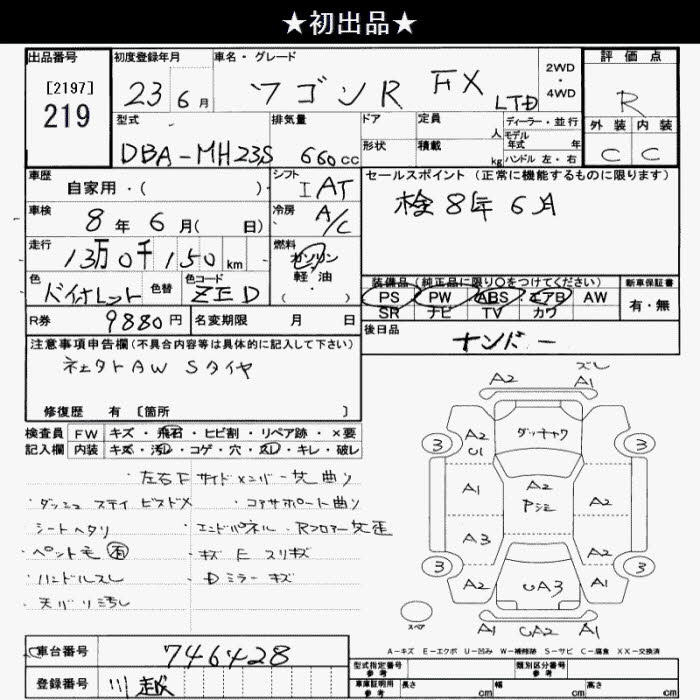 ★初出品★
出品番号 初度登録年月 車名・グレード 2WD・4WD 評価点
[2197]
219
23 6月 ワゴンR FX LTD R
型式 排気量 ドア 定員 人 ディーラー・並行 外装 内装
DBA-MH23S 660cc 形状 積載 kg モデル年式 年 ハンドル 左・右 C C
車歴 自家用・( ) シフト IAT セールスポイント(正常に機能するものに限ります)
車検 8年 6月( 日) 冷房 A/C 検8年6月
走行 13万0千150km 燃料 ガソリン・軽・油
色 バイオレット 色替 色コード ZED 装備品(純正品に限り○をつけてください) 新車保証書
PS PW ABS エアB AW 有・無
SR ナビ TV カワ
R券 9880円 名変期限 月 日 後日品
ナンバー
注意事項申告欄(不具合内容等は具体的に記入して下さい)
AW Sタイヤ
修復歴 有 [箇所 ]
検査員 FW キズ・飛石・ヒビ割・リペア跡・×要
記入欄 内装 キズ・汚レ・コゲ・穴・スレ・キレ・破レ
左右Fサイドメンバー 曲り
・ダッシュ ステイ ビスドメ ・コアサポート曲り
・シートヘタリ ・エンドパネル・Rフロアー 歪
・ペット毛 有 ・ガラス スリキズ
・ハンドルスレ ・Dミラー キズ
・天バリ汚レ
A2 ズレ A1
3 A2 U1 ダッチャク 3
A1 A2 Pシミ A2
A3
3 A2 UA3 A1 3
スペア A1 UA2 A1
A-キズ E-エクボ U-凹み W-補修跡 S-サビ C-腐食 XX-交換済
車台番号 746428
登録番号 川越
型式指定番号 参考 類別区分番号 参考
車庫証明用 参考 長さ cm 幅 cm 高さ cm